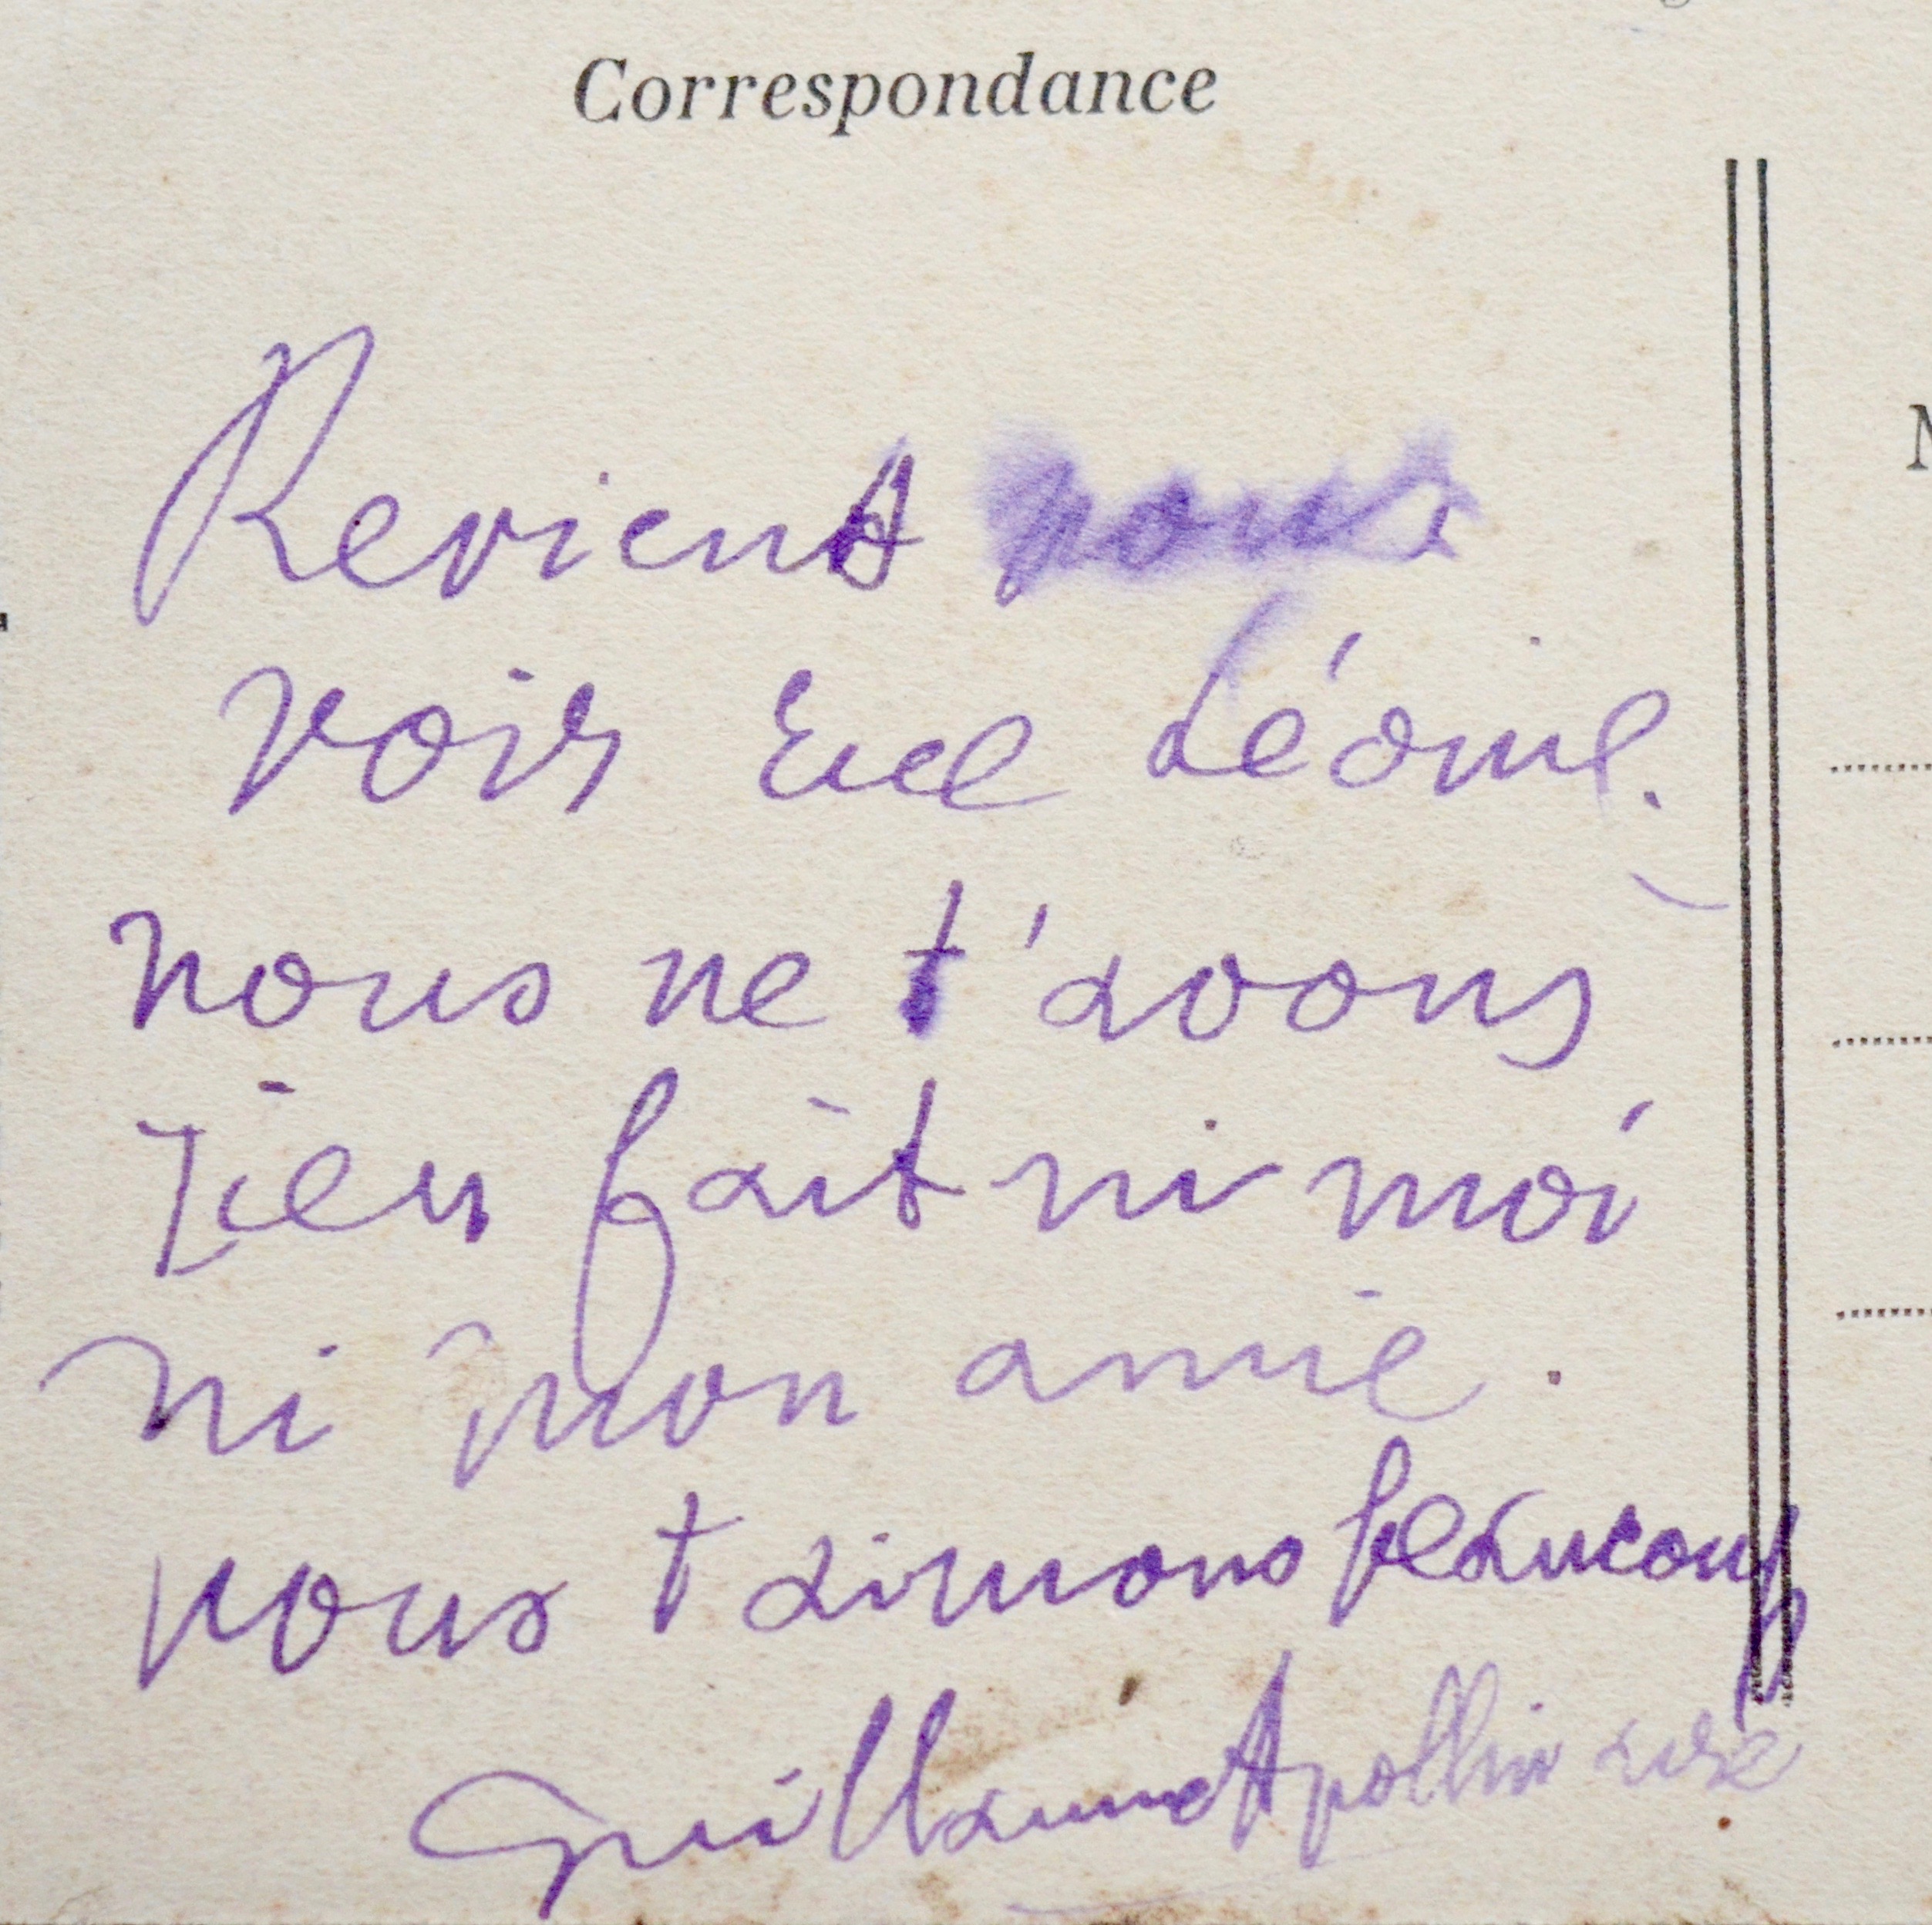 Correspondance
Reviens nous
voir Léonie.
nous ne t'avons
rien fait ni moi
ni mon amie.
nous t aimons beaucoup
Guillaume Apollinaire